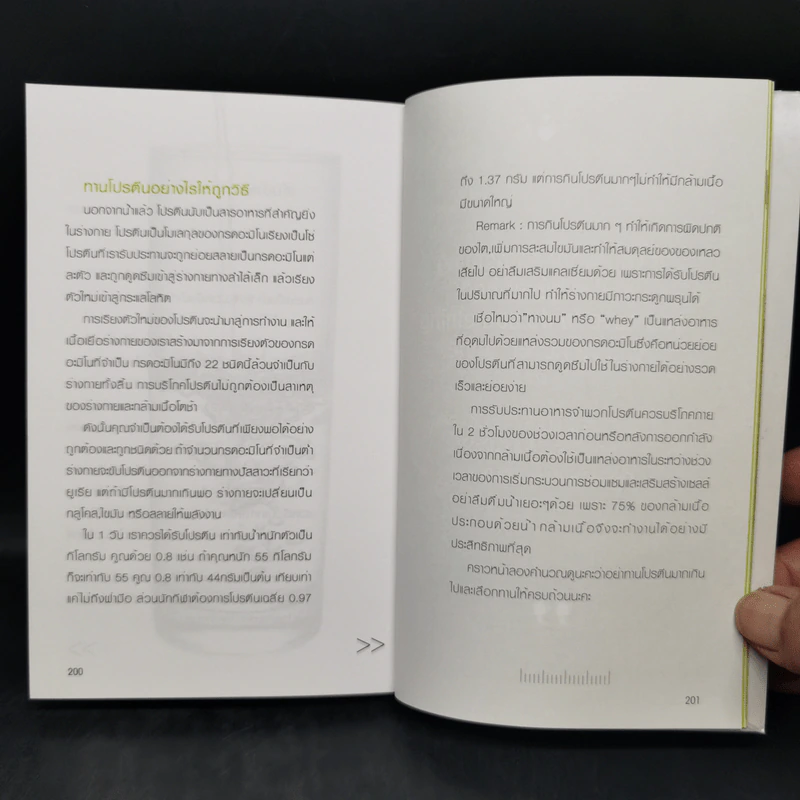 ทานโปรตีนอย่างไรให้ถูกวิธี
นอกจากน้ำแล้ว โปรตีนนับเป็นสารอาหารที่สำคัญยิ่ง
ในร่างกาย โปรตีนเป็นโมเลกุลของกรดอะมิโนเรียงเป็นโซ่
โปรตีนที่เรารับประทานจะถูกย่อยสลายเป็นกรดอะมิโนแต่
ละตัว และถูกดูดซึมเข้าสู่ร่างกายทางลำไส้เล็ก แล้วเรียง
ตัวใหม่เข้าสู่กระแสโลหิต
การเรียงตัวใหม่ของโปรตีนจะนำมาสู่การทำงาน และให้
เนื้อเยื่อร่างกายของเราสร้างมาจากการเรียงตัวของกรด
อะมิโนที่จำเป็น กรดอะมิโนมีถึง 22 ชนิดนี้ล้วนจำเป็นกับ
ร่างกายทั้งสิ้น การบริโภคโปรตีนไม่ถูกต้องเป็นสาเหตุ
ของร่างกายและกล้ามเนื้อโตช้า
ดังนั้นคุณจำเป็นต้องได้รับโปรตีนที่เพียงพอได้อย่าง
ถูกต้องและถูกชนิดด้วย ถ้าจำนวนกรดอะมิโนที่จำเป็นต่ำ
ร่างกายจะขับโปรตีนออกจากร่างกายทางปัสสาวะที่เรียกว่า
ยูเรีย แต่ถ้ามีโปรตีนมากเกินพอ ร่างกายจะเปลี่ยนเป็น
กลูโคส,ไขมัน หรือสลายให้พลังงาน
ใน 1 วัน เราควรได้รับโปรตีน เท่ากับน้ำหนักตัวเป็น
กิโลกรัม คูณด้วย 0.8 เช่น ถ้าคุณหนัก 55 กิโลกรัม
ก็จะเท่ากับ 55 คูณ 0.8 เท่ากับ 44กรัมเป็นต้น เทียบเท่า
แค่ไม่ถึงฝ่ามือ ส่วนนักกีฬาต้องการโปรตีนเฉลี่ย 0.97
>>
200
ถึง 1.37 กรัม แต่การกินโปรตีนมากๆไม่ทำให้มีกล้ามเนื้อ
มีขนาดใหญ่
Remark : การกินโปรตีนมาก ๆ ทำให้เกิดการผิดปกติ
ของไต,เพิ่มการสะสมไขมันและทำให้สมดุลย์ของของเหลว
เสียไป อย่าลืมเสริมแคลเซียมด้วย เพราะการได้รับโปรตีน
ในปริมาณที่มากไป ทำให้ร่างกายมีภาวะกระดูกพรุนได้
เชื่อไหมว่า"หางนม" หรือ "whey" เป็นแหล่งอาหาร
ที่อุดมไปด้วยแหล่งรวมของกรดอะมิโนซึ่งคือหน่วยย่อย
ของโปรตีนที่สามารถดูดซึมไปใช้ในร่างกายได้อย่างรวด
เร็วและย่อยง่าย
การรับประทานอาหารจำพวกโปรตีนควรบริโภคภาย
ใน 2 ชั่วโมงของช่วงเวลาก่อนหรือหลังการออกกำลัง
เนื่องจากกล้ามเนื้อต้องใช้เป็นแหล่งอาหารในระหว่างช่วง
เวลาของการเริ่มกระบวนการซ่อมแซมและเสริมสร้างเซลล์
อย่าลืมดื่มน้ำเยอะๆด้วย เพราะ 75% ของกล้ามเนื้อ
ประกอบด้วยน้ำ กล้ามเนื้อจึงจะทำงานได้อย่างมี
ประสิทธิภาพที่สุด
คราวหน้าลองคำนวณดูนะคะว่าอย่าทานโปรตีนมากเกิน
ไปและเลือกทานให้ครบถ้วนนะคะ
201